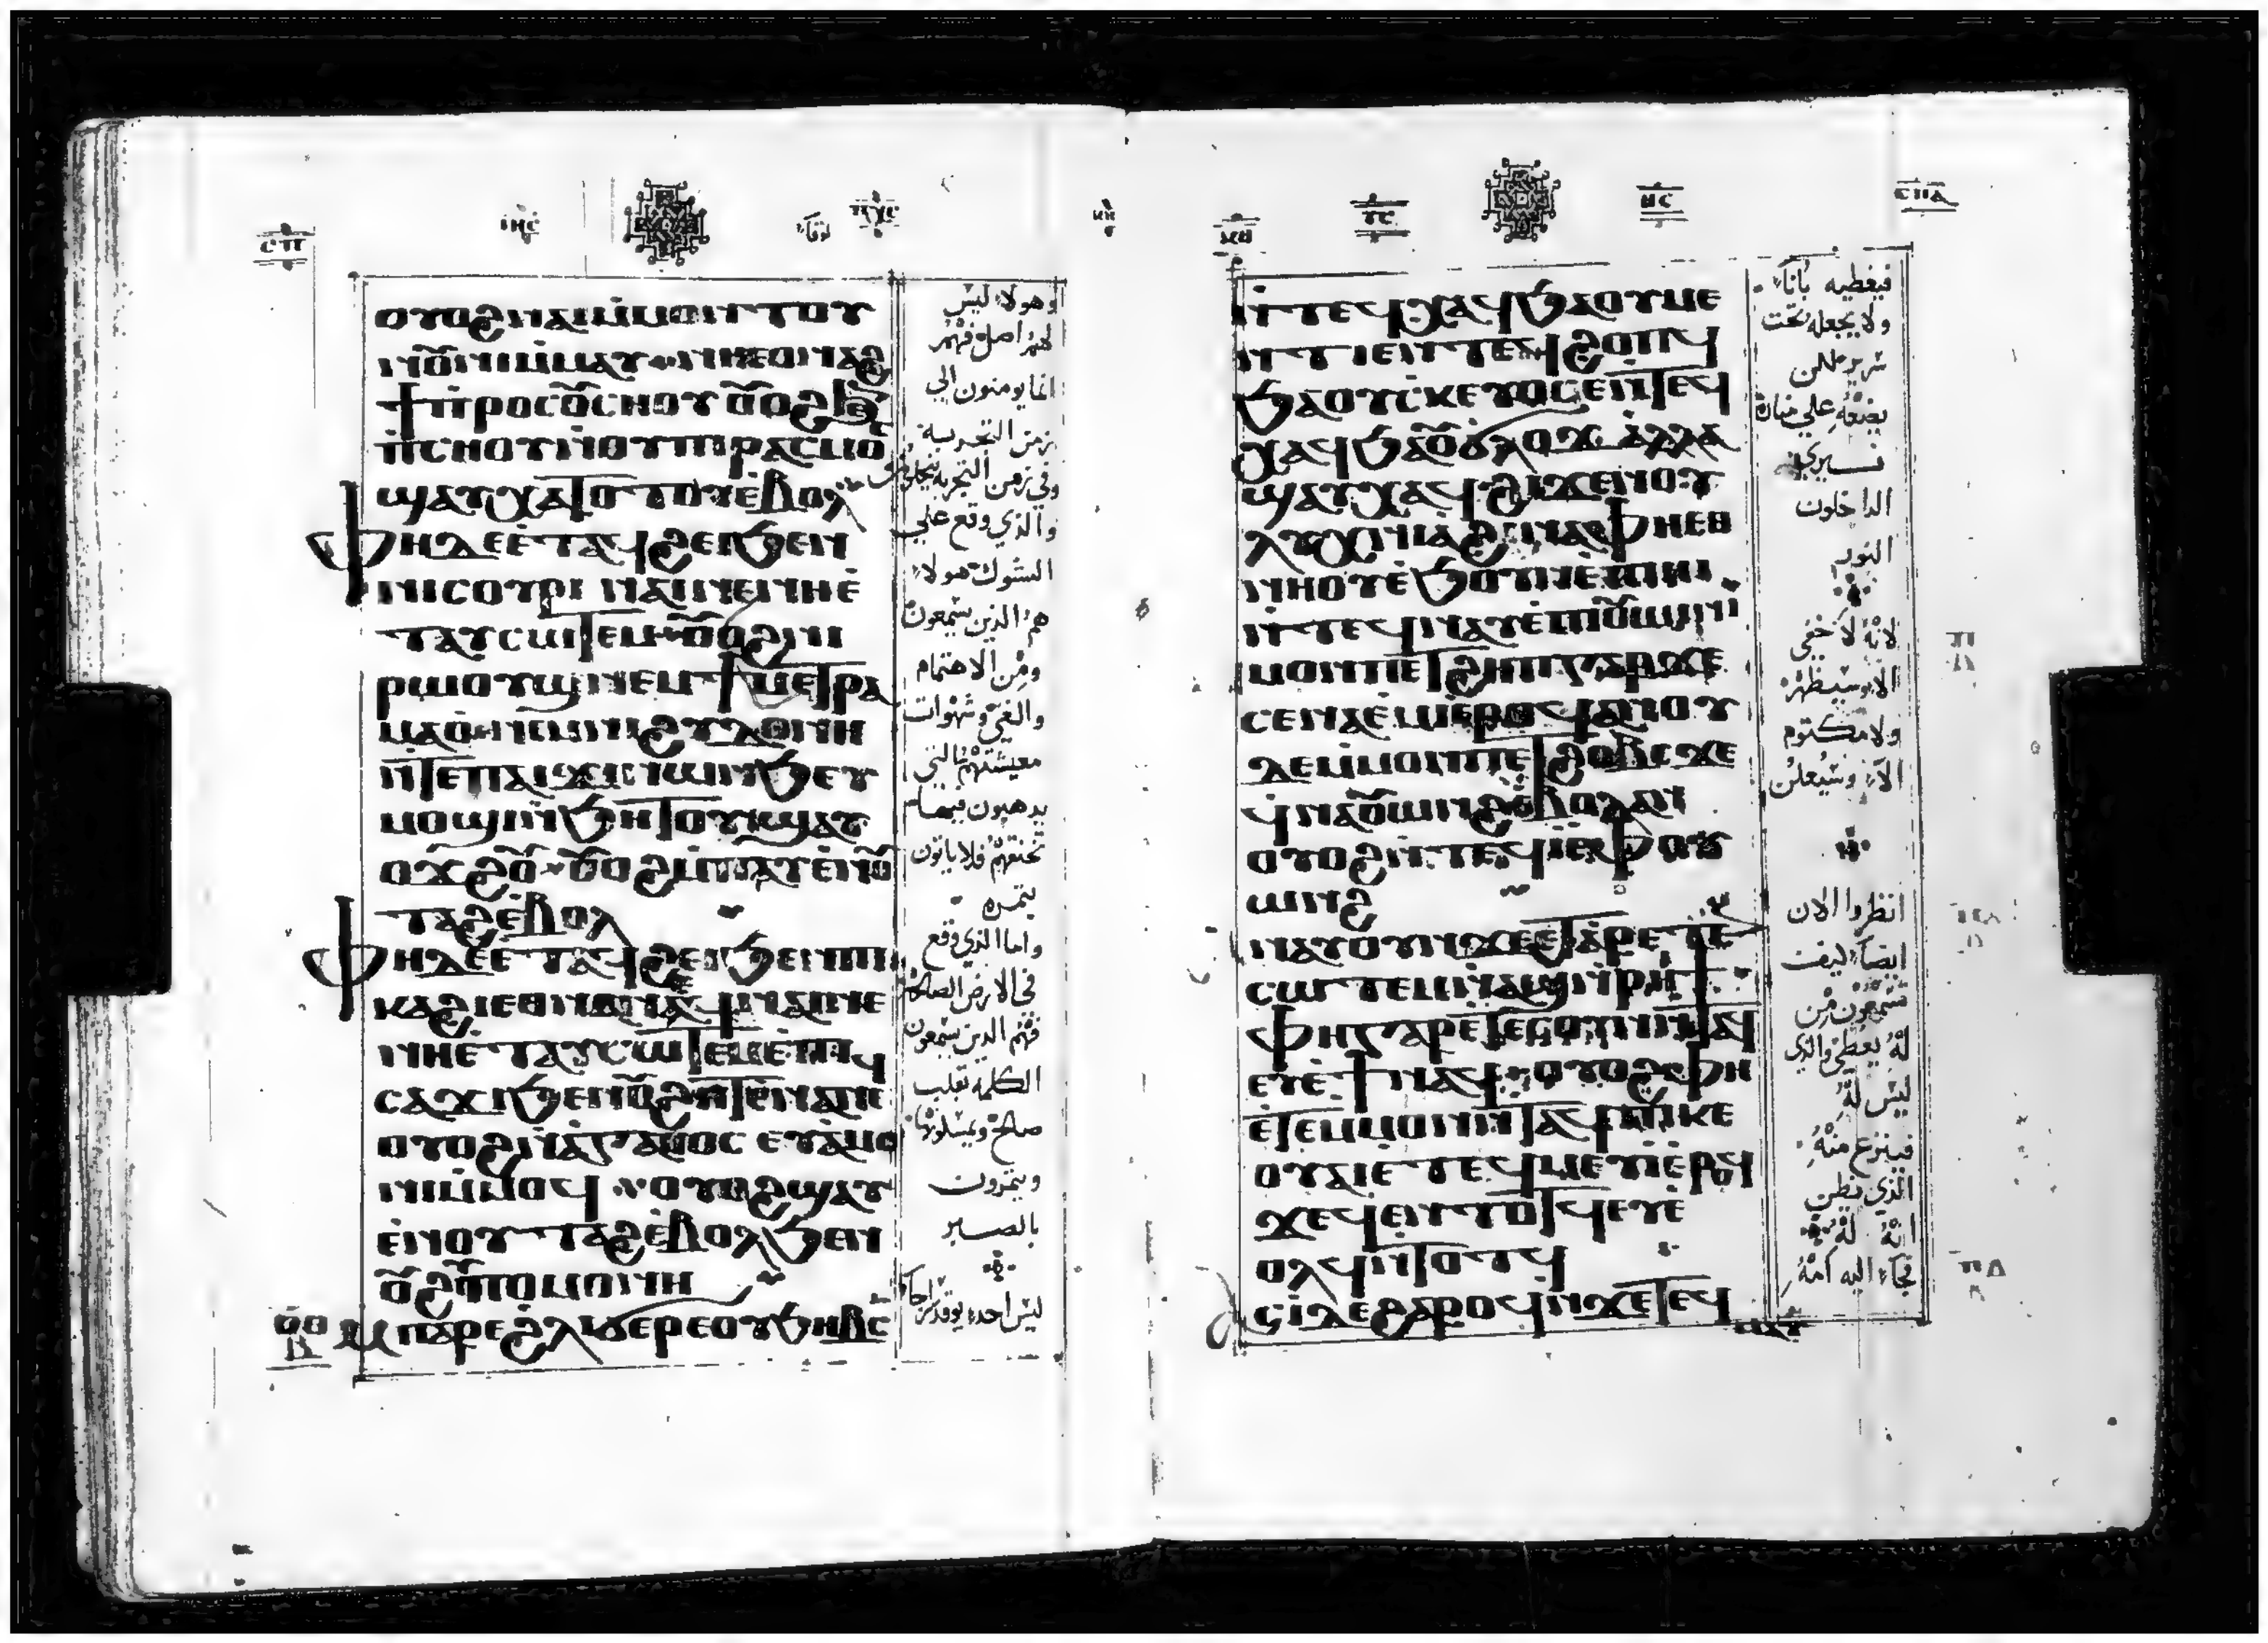 ⲥⲡ
ⲓⲏⲥ
لوقا
ⲡⲭⲥ
ⲟⲩⲟϩ ⲛⲁⲓ ⲙ̀ⲙⲟⲛⲧⲟⲩ
ⲛⲟⲩⲛⲓ ⲙ̀ⲙⲁⲩ ⲛⲏⲉⲑⲛⲁϩ
ϯ ⲡⲣⲟⲥ ⲟⲩⲥⲏⲟⲩ ⲟⲩⲟϩ ϧⲉⲛ
ⲡ̀ⲥⲏⲟⲩ ⲛ̀ⲟⲩⲡⲓⲣⲁⲥⲙⲟⲥ
ϣⲁⲩⲭⲁⲧⲟⲧⲟⲩ ⲉ̀ⲃⲟⲗ
ⲫⲏ ⲇⲉ ⲉ̀ⲧⲁϥϩⲉⲓ ϧⲉⲛ
ⲛⲓⲥⲟⲩⲣⲓ ⲛⲁⲓ ⲛⲉ ⲛⲏ ⲉ̀
ⲧⲁⲩⲥⲱⲧⲉⲙ ⲟⲩⲟϩ ⲛⲓ
ⲣⲱⲟⲩϣ ⲛⲉⲙ ϯⲙⲉⲧⲣⲁ
ⲙⲁⲟ̀ ⲛⲉⲙ ⲛⲓϩⲩⲇⲟⲛⲏ
ⲛ̀ⲧⲉ ⲡⲁⲓϫⲓⲛⲱⲛϧ ⲉⲩ
ⲙⲟϣⲓ ⲛ̀ϧⲏⲧⲟⲩ ϣⲁⲩ
ⲟϫϩⲟⲩ ⲟⲩⲟϩ ⲙ̀ⲡⲁⲩⲉⲛⲟⲩ
ⲧⲁϩ ⲉ̀ⲃⲟⲗ
ⲫⲏ ⲇⲉ ⲉ̀ⲧⲁϥϩⲉⲓ ϧⲉⲛ ⲡⲓ
ⲕⲁϩⲓ ⲉⲑⲛⲁⲛⲉϥ ⲛⲁⲓ ⲛⲉ
ⲛⲏ ⲉ̀ⲧⲁⲩⲥⲱⲧⲉⲙ ⲉ̀ⲡⲓ
ⲥⲁϫⲓ ϧⲉⲛ ⲟⲩϩⲏⲧ ⲉⲛⲁⲛⲉϥ
ⲟⲩⲟϩ ⲛ̀ⲁⲅⲁⲑⲟⲥ ⲉⲩⲁ̀ⲙⲟ
ⲛⲓ ⲙ̀ⲙⲟϥ ⲟⲩⲟϩ ϣⲁⲩ
ⲉ̀ⲛⲟⲩⲧⲁϩ ⲉ̀ⲃⲟⲗ ϧⲉⲛ
ⲟⲩϩⲩⲡⲟⲙⲟⲛⲏ
ⲙ̀ⲡⲁⲣⲉ ϩⲗⲓ ϭⲉⲣⲉ ⲟⲩϧⲏⲃⲥ
وهولاء ليس
لهم اصل فهم
انما يومنون الي
زمن التجربة
وفي زمن التجربة يتخلون
والذي وقع علي
الشوك هولاء
هم الذين يسمعون
ومن الاهتمام
والغني وشهوات
معيشتهم التي
يذهبون فيها
تخنقهم فلا ياتون
بثمرة
واما الذي وقع
في الارض الصالحة
فهم الذين يسمعون
الكلمة بقلب
صالح ويمسكونها
ويثمرون
بالصبر
ليس احد يوقد سراجا
ⲩⲥ
ⲑⲥ
ⲥⲡⲁ
ⲛ̀ⲧⲉϥⲭⲁϥ ϧⲁ ⲟⲩⲙⲉ
ⲛ̀ⲧ ⲓⲉ ⲛ̀ⲧⲉϥϩⲟⲡϥ
ϧⲁ ⲟⲩⲥⲕⲉⲩⲟⲥ ⲓⲉ ⲛ̀ⲧⲉϥ
ⲭⲁϥ ϧⲁ ⲟⲩϭⲗⲟϫ ⲁⲗⲗⲁ
ϣⲁⲩⲭⲁϥ ϩⲓϫⲉⲛ ⲟⲩ
ⲗⲩⲭⲛⲓⲁ ϩⲓⲛⲁ ⲫⲏ ⲉⲑ
ⲛⲏⲟⲩ ⲉ̀ϧⲟⲩⲛ ⲉ̀ⲡⲓⲏⲓ
ⲛ̀ⲧⲉϥⲛⲁⲩ ⲉ̀ⲡⲓⲟⲩⲱⲓⲛⲓ
ⲙⲟⲛ ⲡⲉⲧϩⲏⲡ ⲅⲁⲣ ϫⲉ
ⲥⲉⲛⲁⲉ̀ⲙⲓ ⲉⲣⲟϥ ⲁⲛ ⲟⲩ
ⲇⲉ ⲙ̀ⲙⲟⲛ ⲡⲉⲧϩⲟⲃⲥ ϫⲉ
ϥⲛⲁⲟⲩⲱⲛϩ ⲉ̀ⲃⲟⲗ ⲁⲛ
ⲟⲩⲟϩ ⲛ̀ⲧⲉϥⲓ̀ ⲉ̀ⲫⲟⲩ
ⲱⲛϩ
ⲛⲁⲩ ⲟⲩⲛ ϫⲉ ⲉ̀ⲧⲁⲣⲉⲧⲉⲛ
ⲥⲱⲧⲉⲙ ⲛ̀ⲁϣ ⲛ̀ⲣⲏϯ
ⲫⲏ ⲅⲁⲣ ⲉ̀ⲧⲉ ⲟⲩⲟⲛ ⲛ̀ⲧⲁϥ
ⲉⲩⲉ̀ϯ ⲛⲁϥ ⲟⲩⲟϩ ⲫⲏ
ⲉ̀ⲧⲉ ⲙ̀ⲙⲟⲛ ⲛ̀ⲧⲁϥ ⲡⲓⲕⲉ
ⲟⲩⲁⲓ ⲉ̀ⲧⲉϥⲙⲉⲩⲓ̀ ⲉ̀ⲣⲟϥ
ϫⲉ ϥⲉⲛⲧⲟⲧϥ ⲉⲩⲉ̀
ⲟⲗϥ ⲛ̀ⲧⲟⲧϥ
ⲁⲥⲓ̀ ⲇⲉ ϩⲁⲣⲟϥ ⲛ̀ϫⲉ ⲧⲉϥ
ⲙⲁⲩ
فيغطيه باناء
ولا يجعله تحت
سرير لكن
يضعه علي منارة
الداخلون
النور
لانه لا خفي
الا وسيظهر
ولا مكتوم
الا وسيعلن
انظروا الان
ايضا كيف
تسمعون من
له يعطي والذي
ليس له
فينزع منه
الذي يظن
انه له
فجاء اليه امه